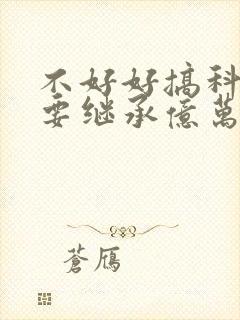 不好好搞科
要继承億萬
蒼鴈